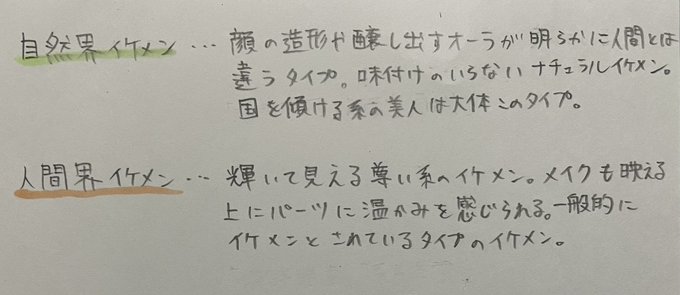 自然界イケメン … 顔の造形や醸し出すオーラが明らかに人間とは
違うタイプ。味付けのいらないナチュラルイケメン。
国を傾ける系の美人は大体このタイプ。
人間界イケメン … 輝いて見える尊い系のイケメン。メイクも映える
上にパーツに温かみを感じられる。一般的に
イケメンとされているタイプのイケメン。